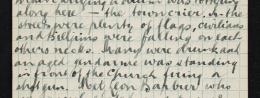 along here - the town crier. In the
streets were plenty of flags, civilians
and Belgians were falling on each
others necks. Many were drunk and
an aged gendarme was standing
in front of the Church firing a
shotgun. Leon Barbier who